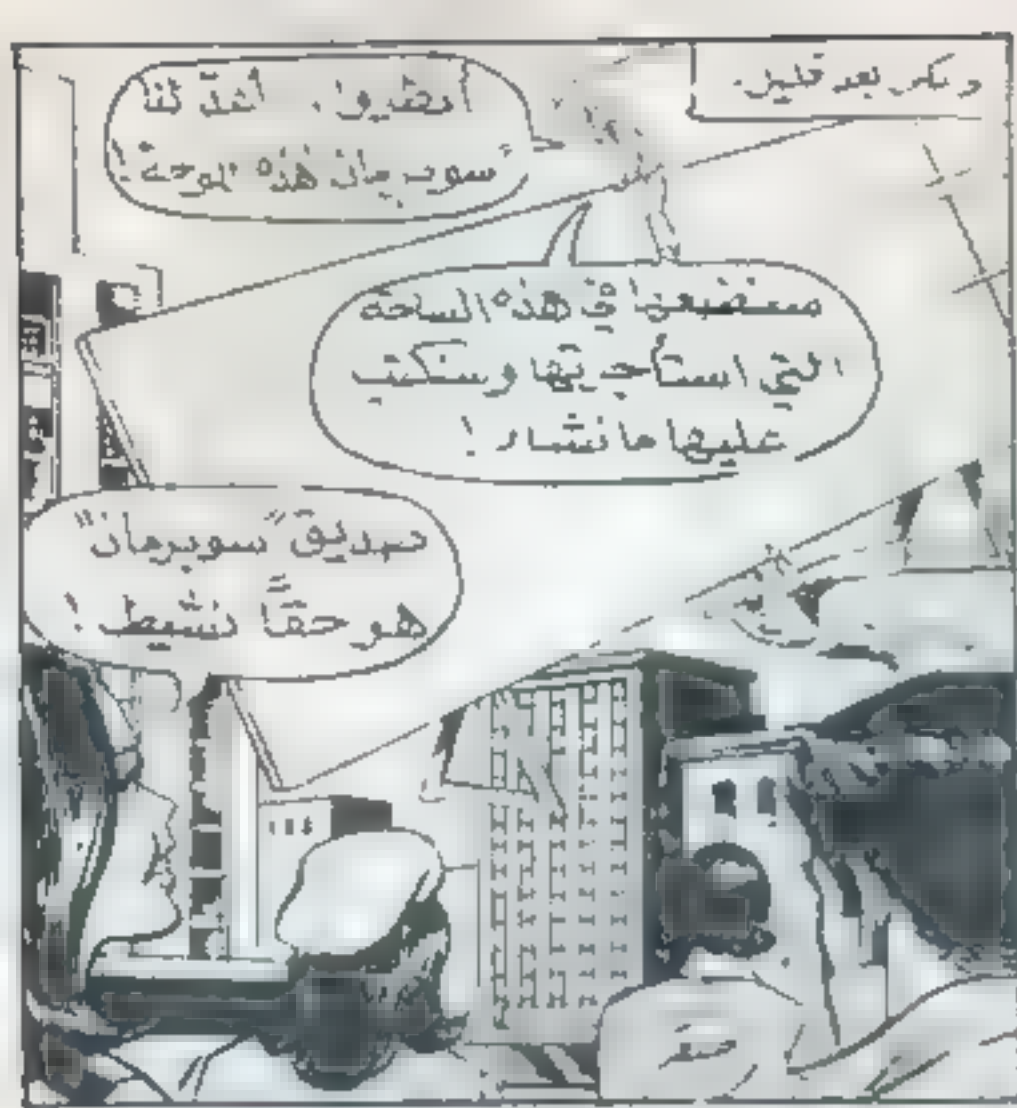 ولكن بعد قليل.
أنظروا، أعدّ لنا
"سوبرمان" هذه اللوحة!
سنضعها في هذه الساحة
التي استأجرتها وسنكتب
عليها ما نشاء!
صديق "سوبرمان"
هو حقاً نشيط!